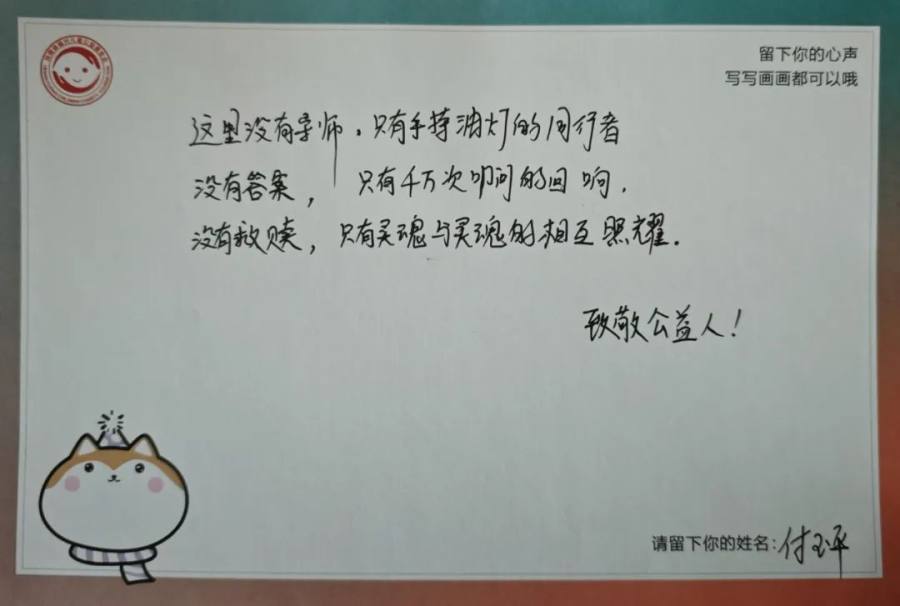 留下你的心声
写写画画都可以哦
这里没有导师，只有手持油灯的同行者
没有答案，只有千万次叩问的回响.
没有救赎，只有灵魂与灵魂的相互照耀.
致敬公益人！
请留下你的姓名:付玉平